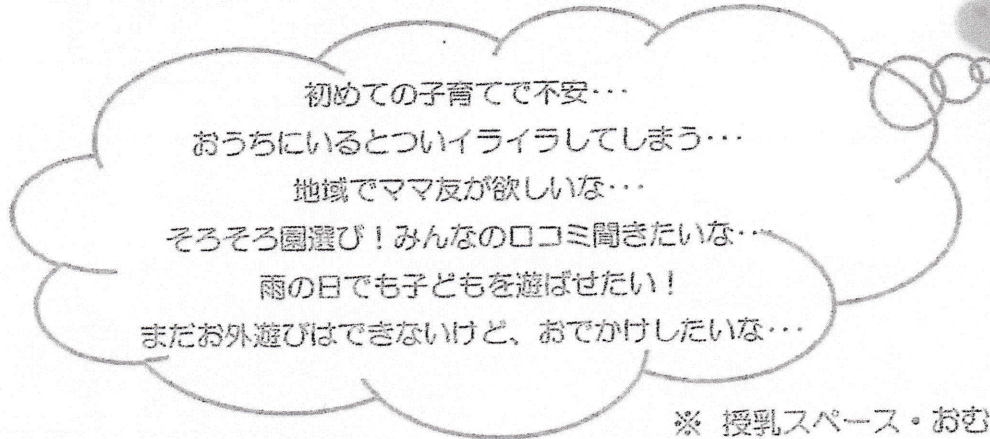 初めての子育てで不安…
おうちにいるとついイライラしてしまう…
地域でママ友が欲しいな…
そろそろ園選び！みんなの口コミ聞きたいな…
雨の日でも子どもを遊ばせたい！
まだお外遊びはできないけど、おでかけしたいな…
※ 授乳スペース・おむ